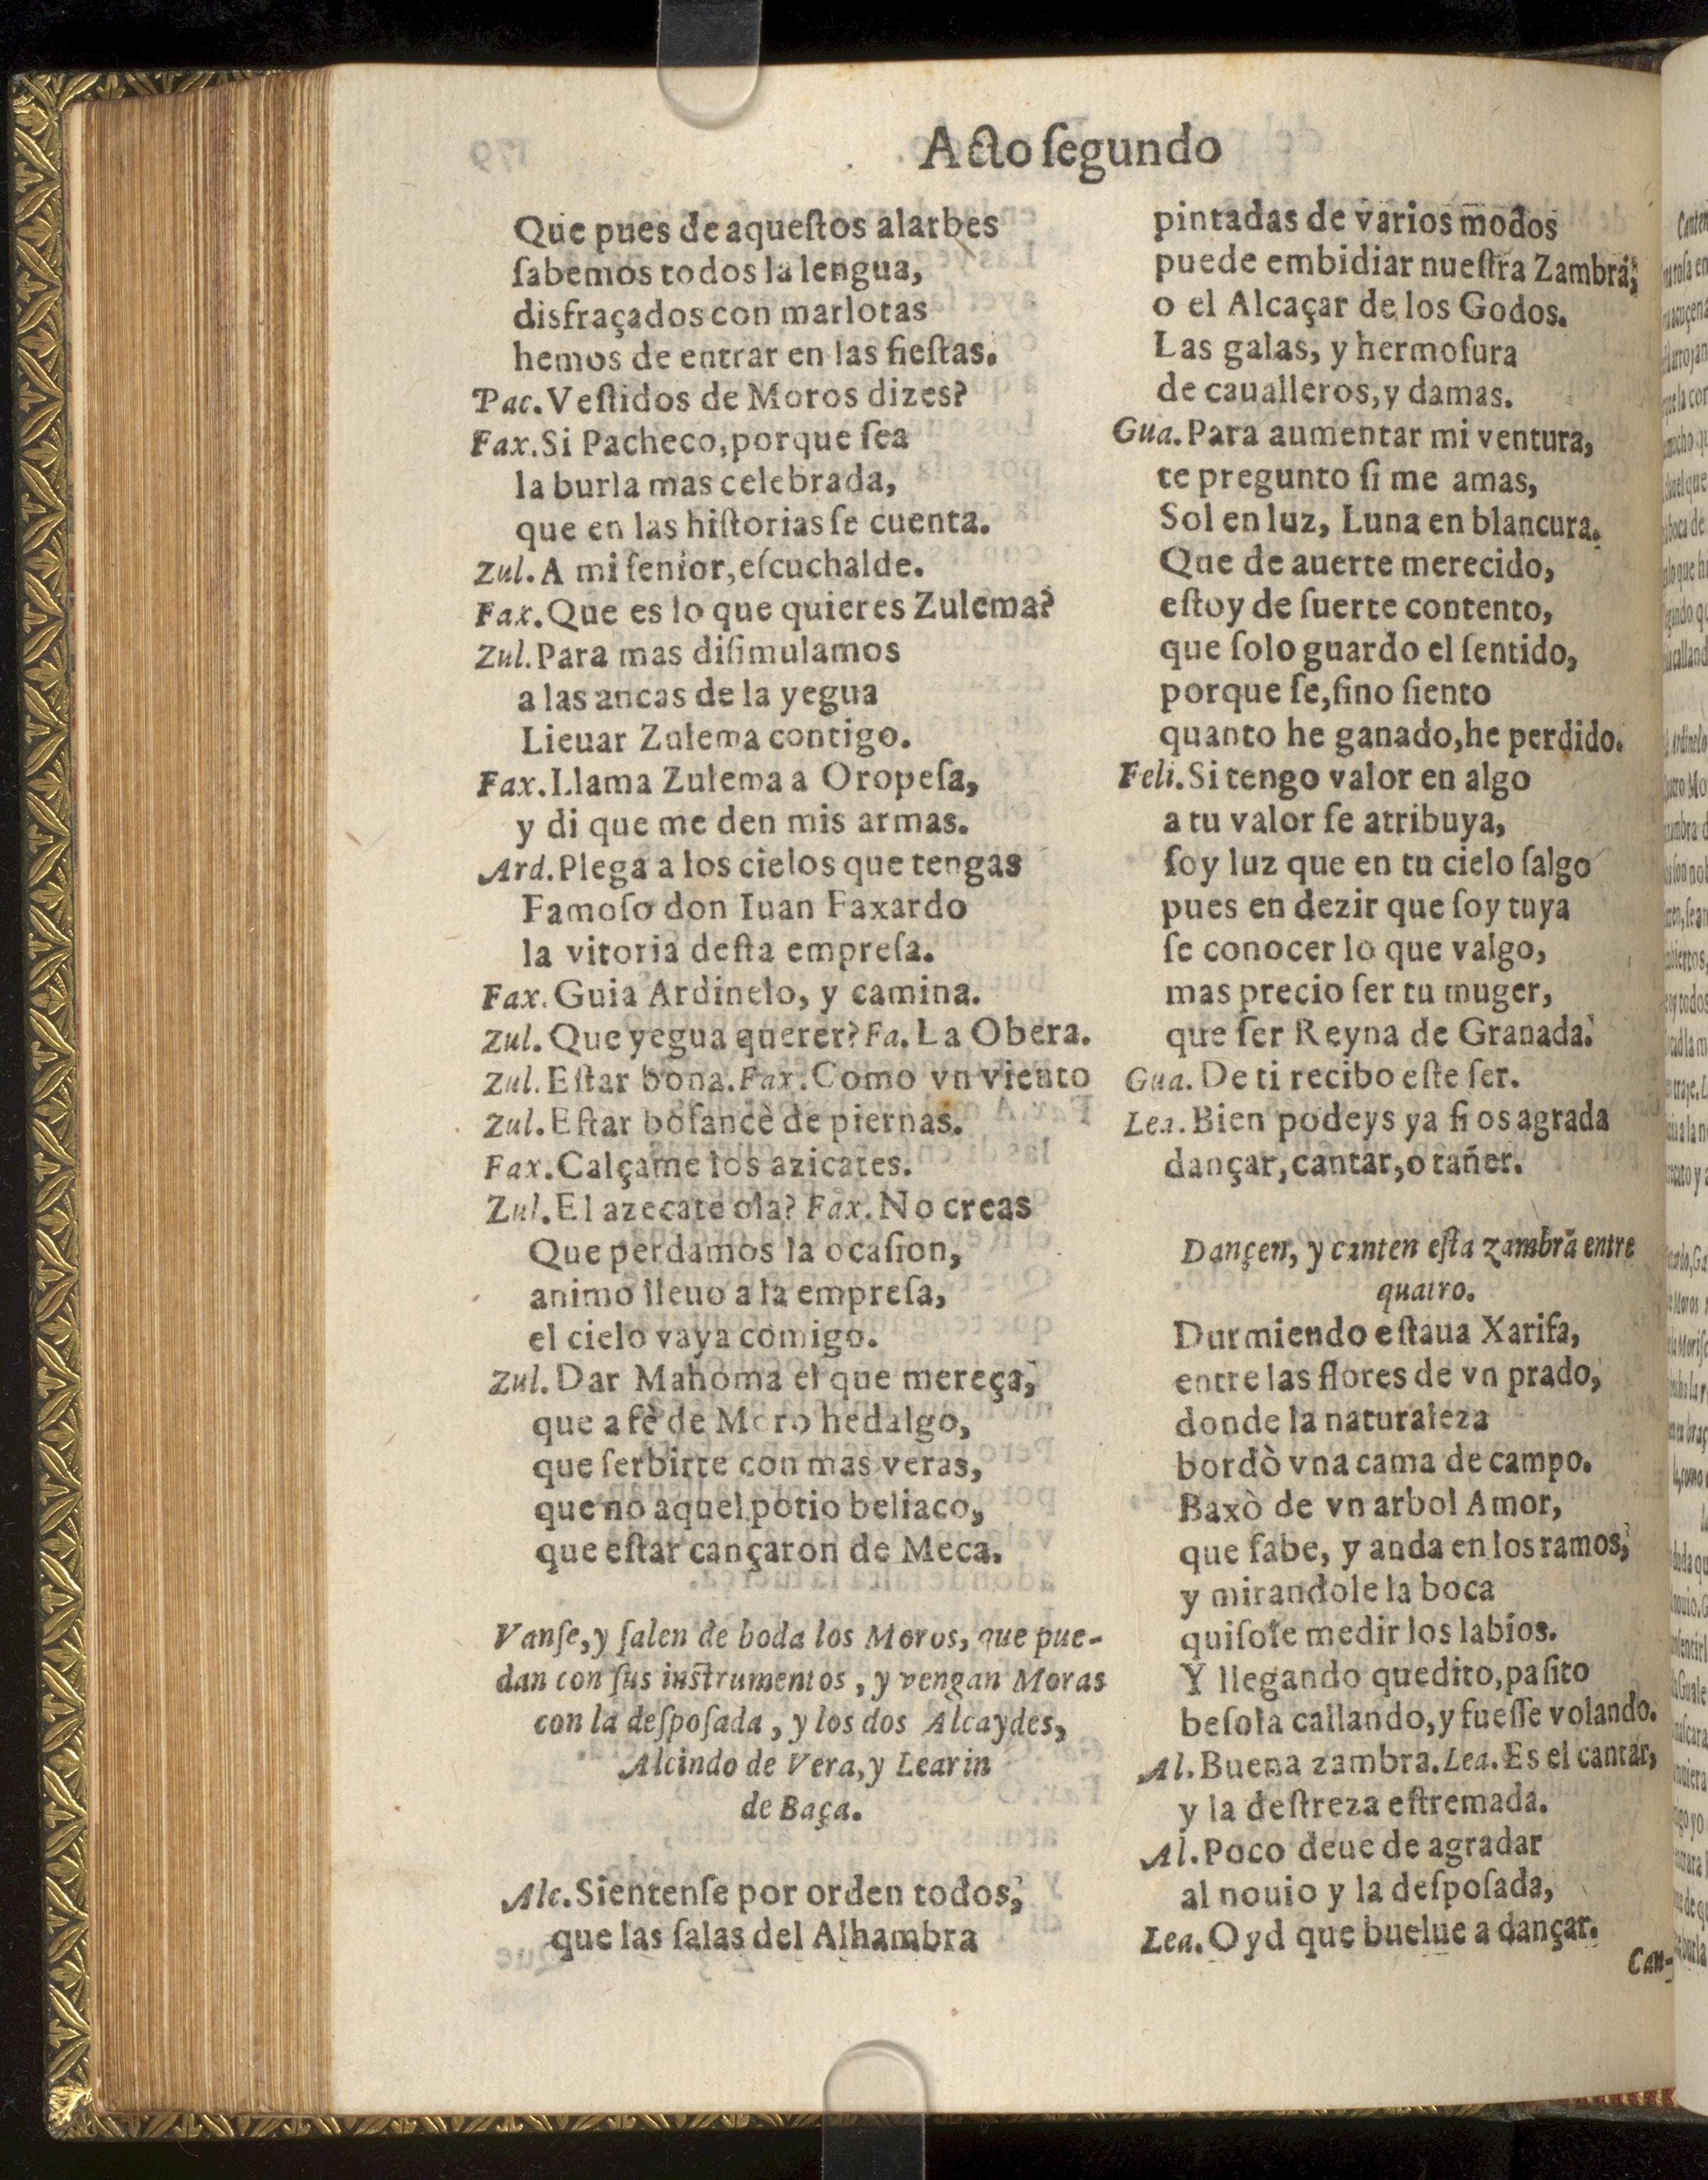 Acto ſegundo
Que pues de aqueſtos alarbes
ſabemos todos la lengua,
disfraçados con marlotas
hemos de entrar en las fieſtas.
Pac. Veſtidos de Moros dizes?
Fax. Si Pacheco, porque ſea
la burla mas celebrada,
que en las hiſtorias ſe cuenta.
Zul. A mi ſenior, eſcuchalde.
Fax. Que es lo que quieres Zulema?
Zul. Para mas diſimulamos
a las ancas de la yegua
Lieuar Zulema contigo.
Fax. Llama Zulema a Oropeſa,
y di que me den mis armas.
Ard. Plega a los cielos que tengas
Famoſo don Iuan Faxardo
la vitoria deſta empreſa.
Fax. Guia Ardinelo, y camina.
Zul. Que yegua querer? Fa. La Obera.
Zul. Eſtar bona. Fax. Como vn viento
Zul. Eſtar bofancè de piernas.
Fax. Calçame los azicates.
Zul. El azecate ola? Fax. No creas
Que perdamos la ocaſion,
animo lleuo a la empreſa,
el cielo vaya comigo.
Zul. Dar Mahoma el que mereça,
que a fè de Moro hedalgo,
que ſerbirte con mas veras,
que no aquel potio beliaco,
que eſtar cançaron de Meca.
Vanſe, y ſalen de boda los Moros, que pue-
dan con ſus inſtrumentos, y vengan Moras
con la deſpoſada, y los dos Alcaydes,
Alcindo de Vera, y Learin
de Baça.
Alc. Sientenſe por orden todos,
que las ſalas del Alhambra
pintadas de varios modos
puede embidiar nueſtra Zambra,
o el Alcaçar de los Godos.
Las galas, y hermoſura
de caualleros, y damas.
Gua. Para aumentar mi ventura,
te pregunto ſi me amas,
Sol en luz, Luna en blancura.
Que de auerte merecido,
eſtoy de ſuerte contento,
que ſolo guardo el ſentido,
porque ſe, ſino ſiento
quanto he ganado, he perdido.
Feli. Si tengo valor en algo
a tu valor ſe atribuya,
ſoy luz que en tu cielo ſalgo
pues en dezir que ſoy tuya
ſe conocer lo que valgo,
mas precio ſer tu muger,
que ſer Reyna de Granada.
Gua. De ti recibo eſte ſer.
Lea. Bien podeys ya ſi os agrada
dançar, cantar, o tañer.
Dançen, y canten eſta zambra entre
quatro.
Durmiendo eſtaua Xarifa,
entre las flores de vn prado,
donde la naturaleza
bordò vna cama de campo.
Baxò de vn arbol Amor,
que ſabe, y anda en los ramos,
y mirandole la boca
quiſole medir los labios.
Y llegando quedito, paſito
beſola callando, y fueſſe volando.
Al. Buena zambra. Lea. Es el cantar,
y la deſtreza eſtremada.
Al. Poco deue de agradar
al nouio y la deſpoſada,
Lea. Oyd que buelue a dançar.
Can-